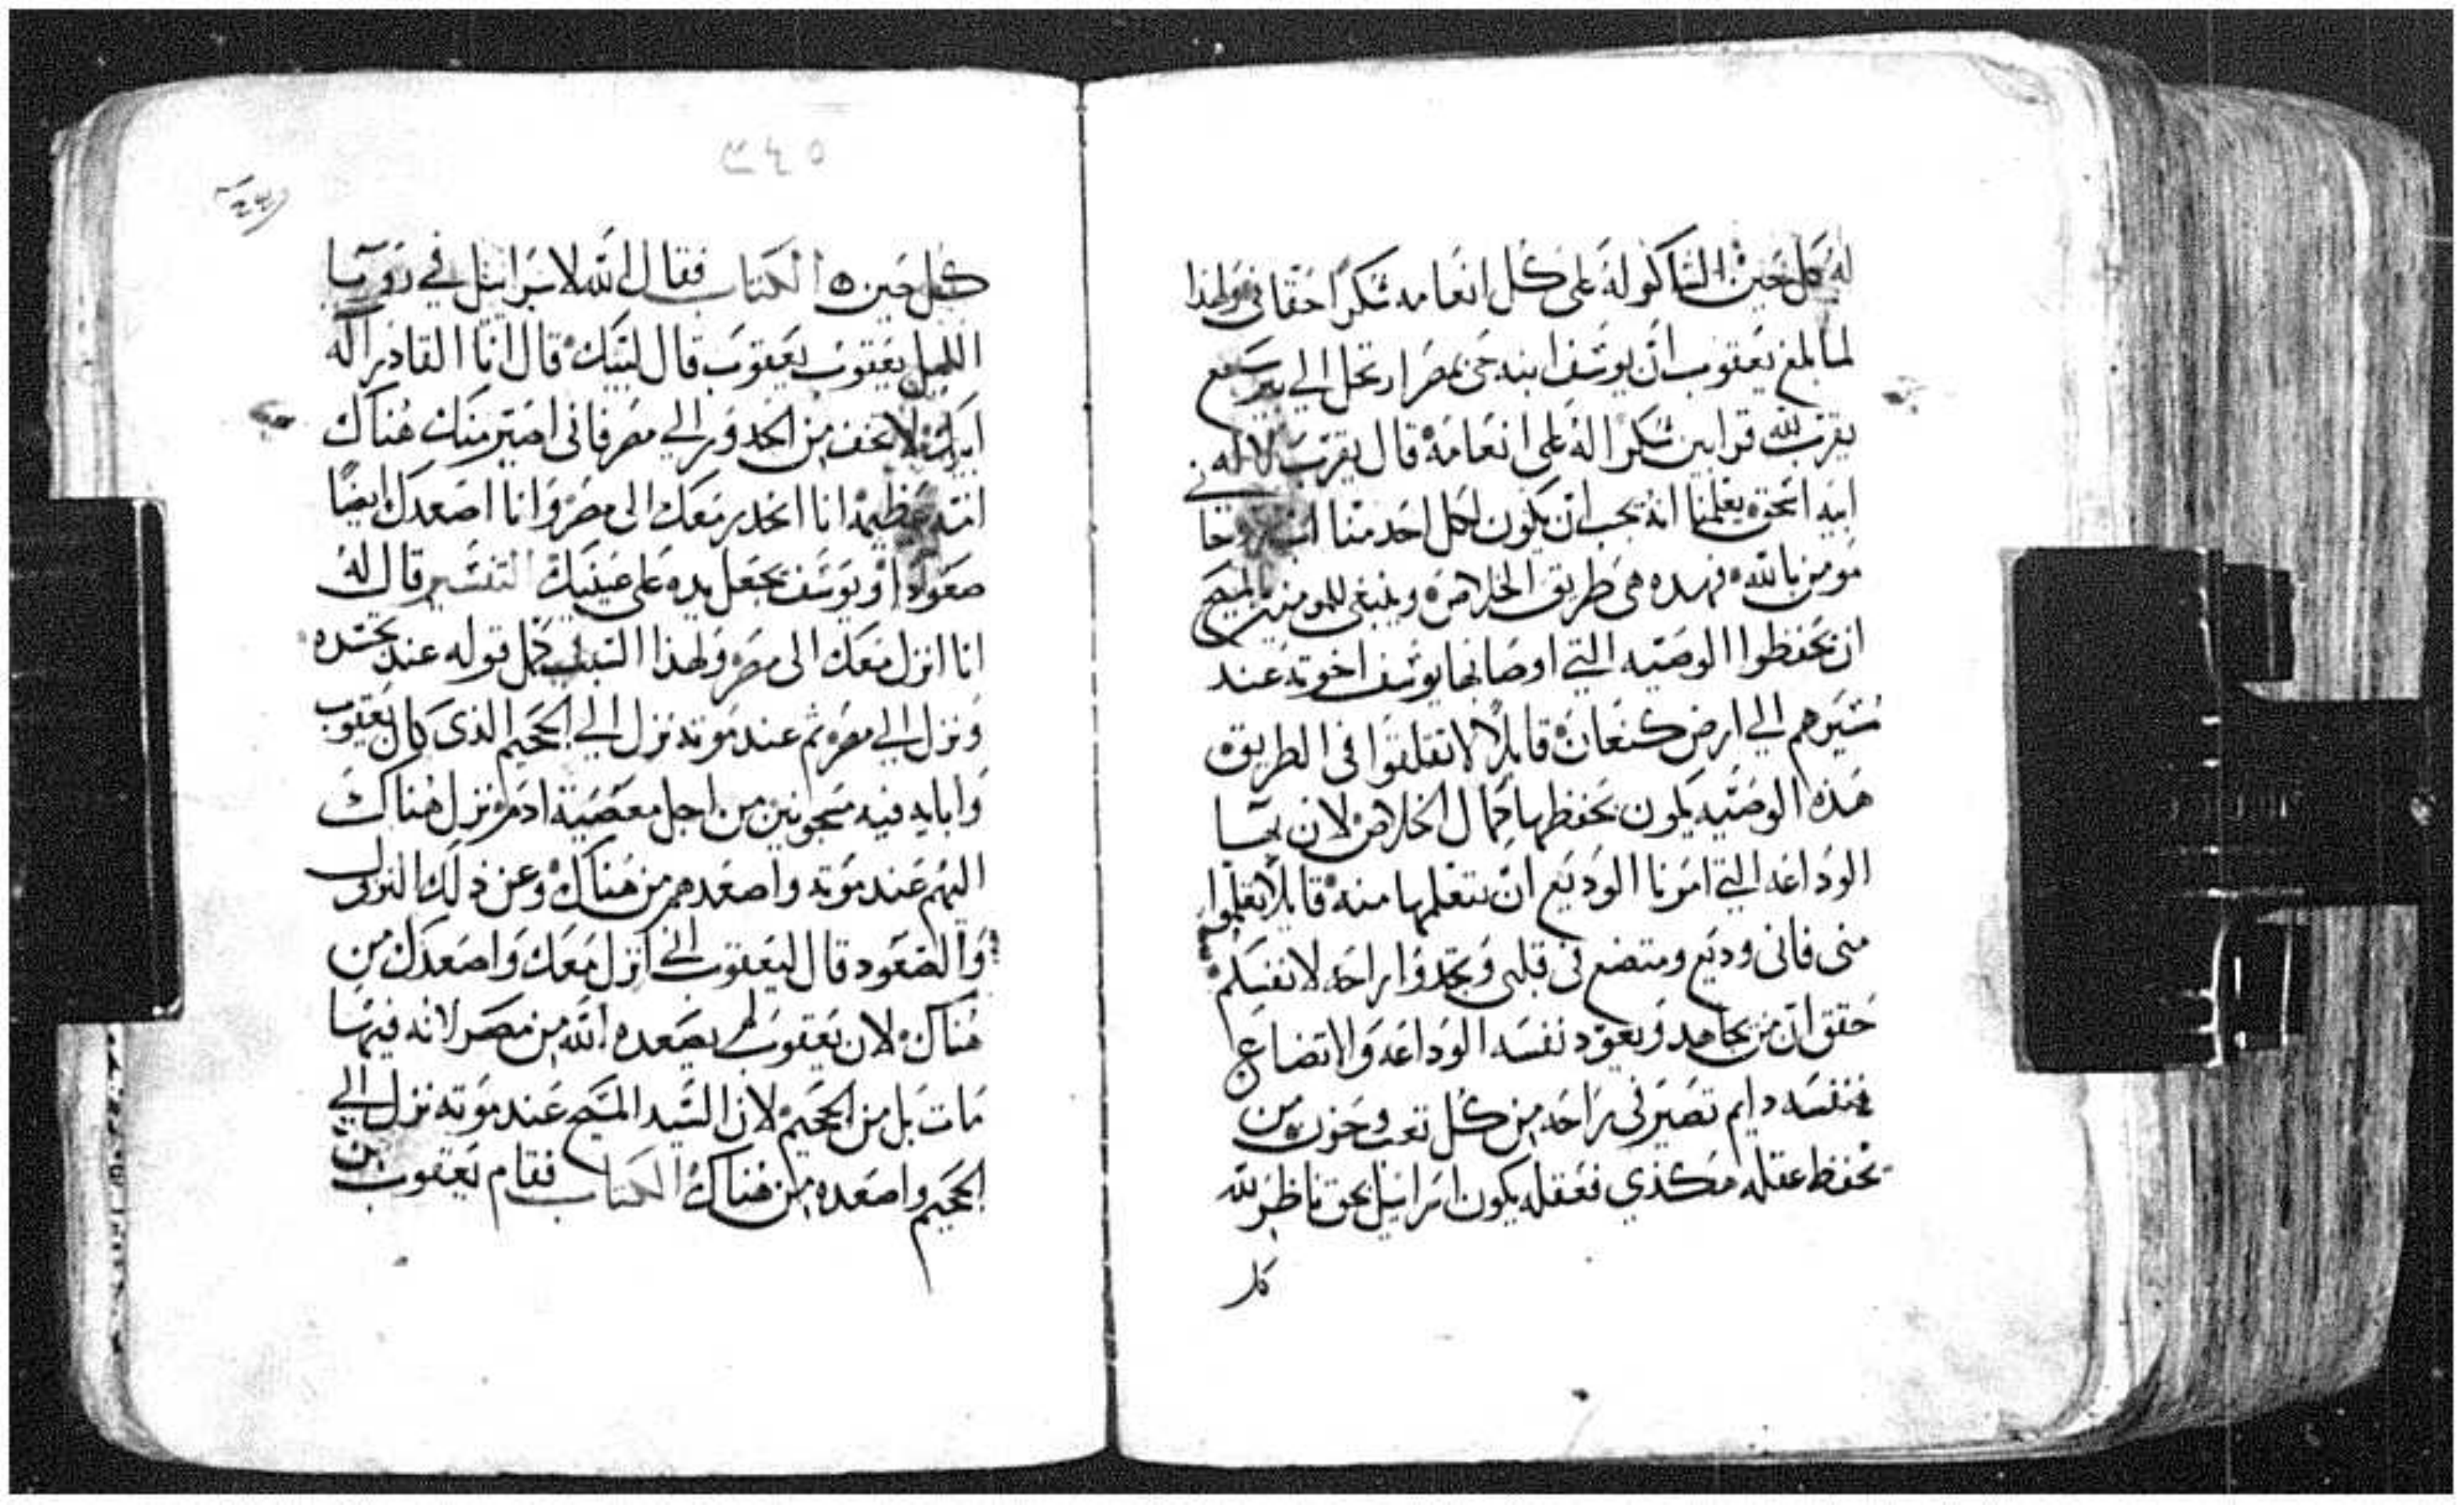 له كل حين الشاكر له على كل انعامه شكرًا حقاني ولهذا
لما بلغ يعقوب ان يوسف ابنه حي بمصر ارتحل الي بير سبع
يقرب لله قرابين شكرًا له على انعامه قال يقرب لاله
ابيه اسحق يعلمنا انه يجب ان يكون لكل احد منا اب
مومن بالله فهذه هي طريق الخلاص وينبغي للمومنين بالمسيح
ان يحفظوا الوصيه التي اوصا بها يوسف اخوته عند
مسيرهم الي ارض كنعان قايلًا لا تقلقوا في الطريق
هذه الوصيه يكون بحفظها كمال الخلاص لان بها
الوداعه التي امرنا الوديع ان نتعلمها منه قايلًا تعلموا
مني فاني وديع ومتضع في قلبي وتجدوا راحه لانفسكم
حقق ان من يجاهد ويعود نفسه الوداعه والاتضاع
فنفسه دايم تصير في راحه من كل تعب وحزن من
يحفظ عقله هكذي فعقله يكون اسراييل بحق ناظر لله
كل
٥٤٣
كل حين ٥ الكتاب فقال الله لاسراييل في رويا
الليل يعقوب يعقوب قال لبيك قال انا القادر اله
ابيك لا تخف من الحدور الي مصر فاني اصير منك هناك
امة عظيمة انا انحدر معك الى مصر وانا اصعدك ايضًا
صعودًا ويوسف يجعل يده على عينيك التفسير قال له
انا انزل معك الى مصر ولهذا السبب كمل قوله عند تجسده
ونزل الي مصر ثم عند موته نزل الي الجحيم الذي كان يعقوب
وابايه فيه مسجونين من اجل معصية ادم نزل هناك
اليهم عند موته واصعدهم من هناك وعن ذلك النزول
والصعود قال ليعقوب اني انزل معك واصعدك من
هناك لان يعقوب لم يصعده الله من مصر لانه فيها
مات بل من الجحيم لان السيد المسيح عند موته نزل الي
الجحيم واصعده من هناك الكتاب فقام يعقوب من